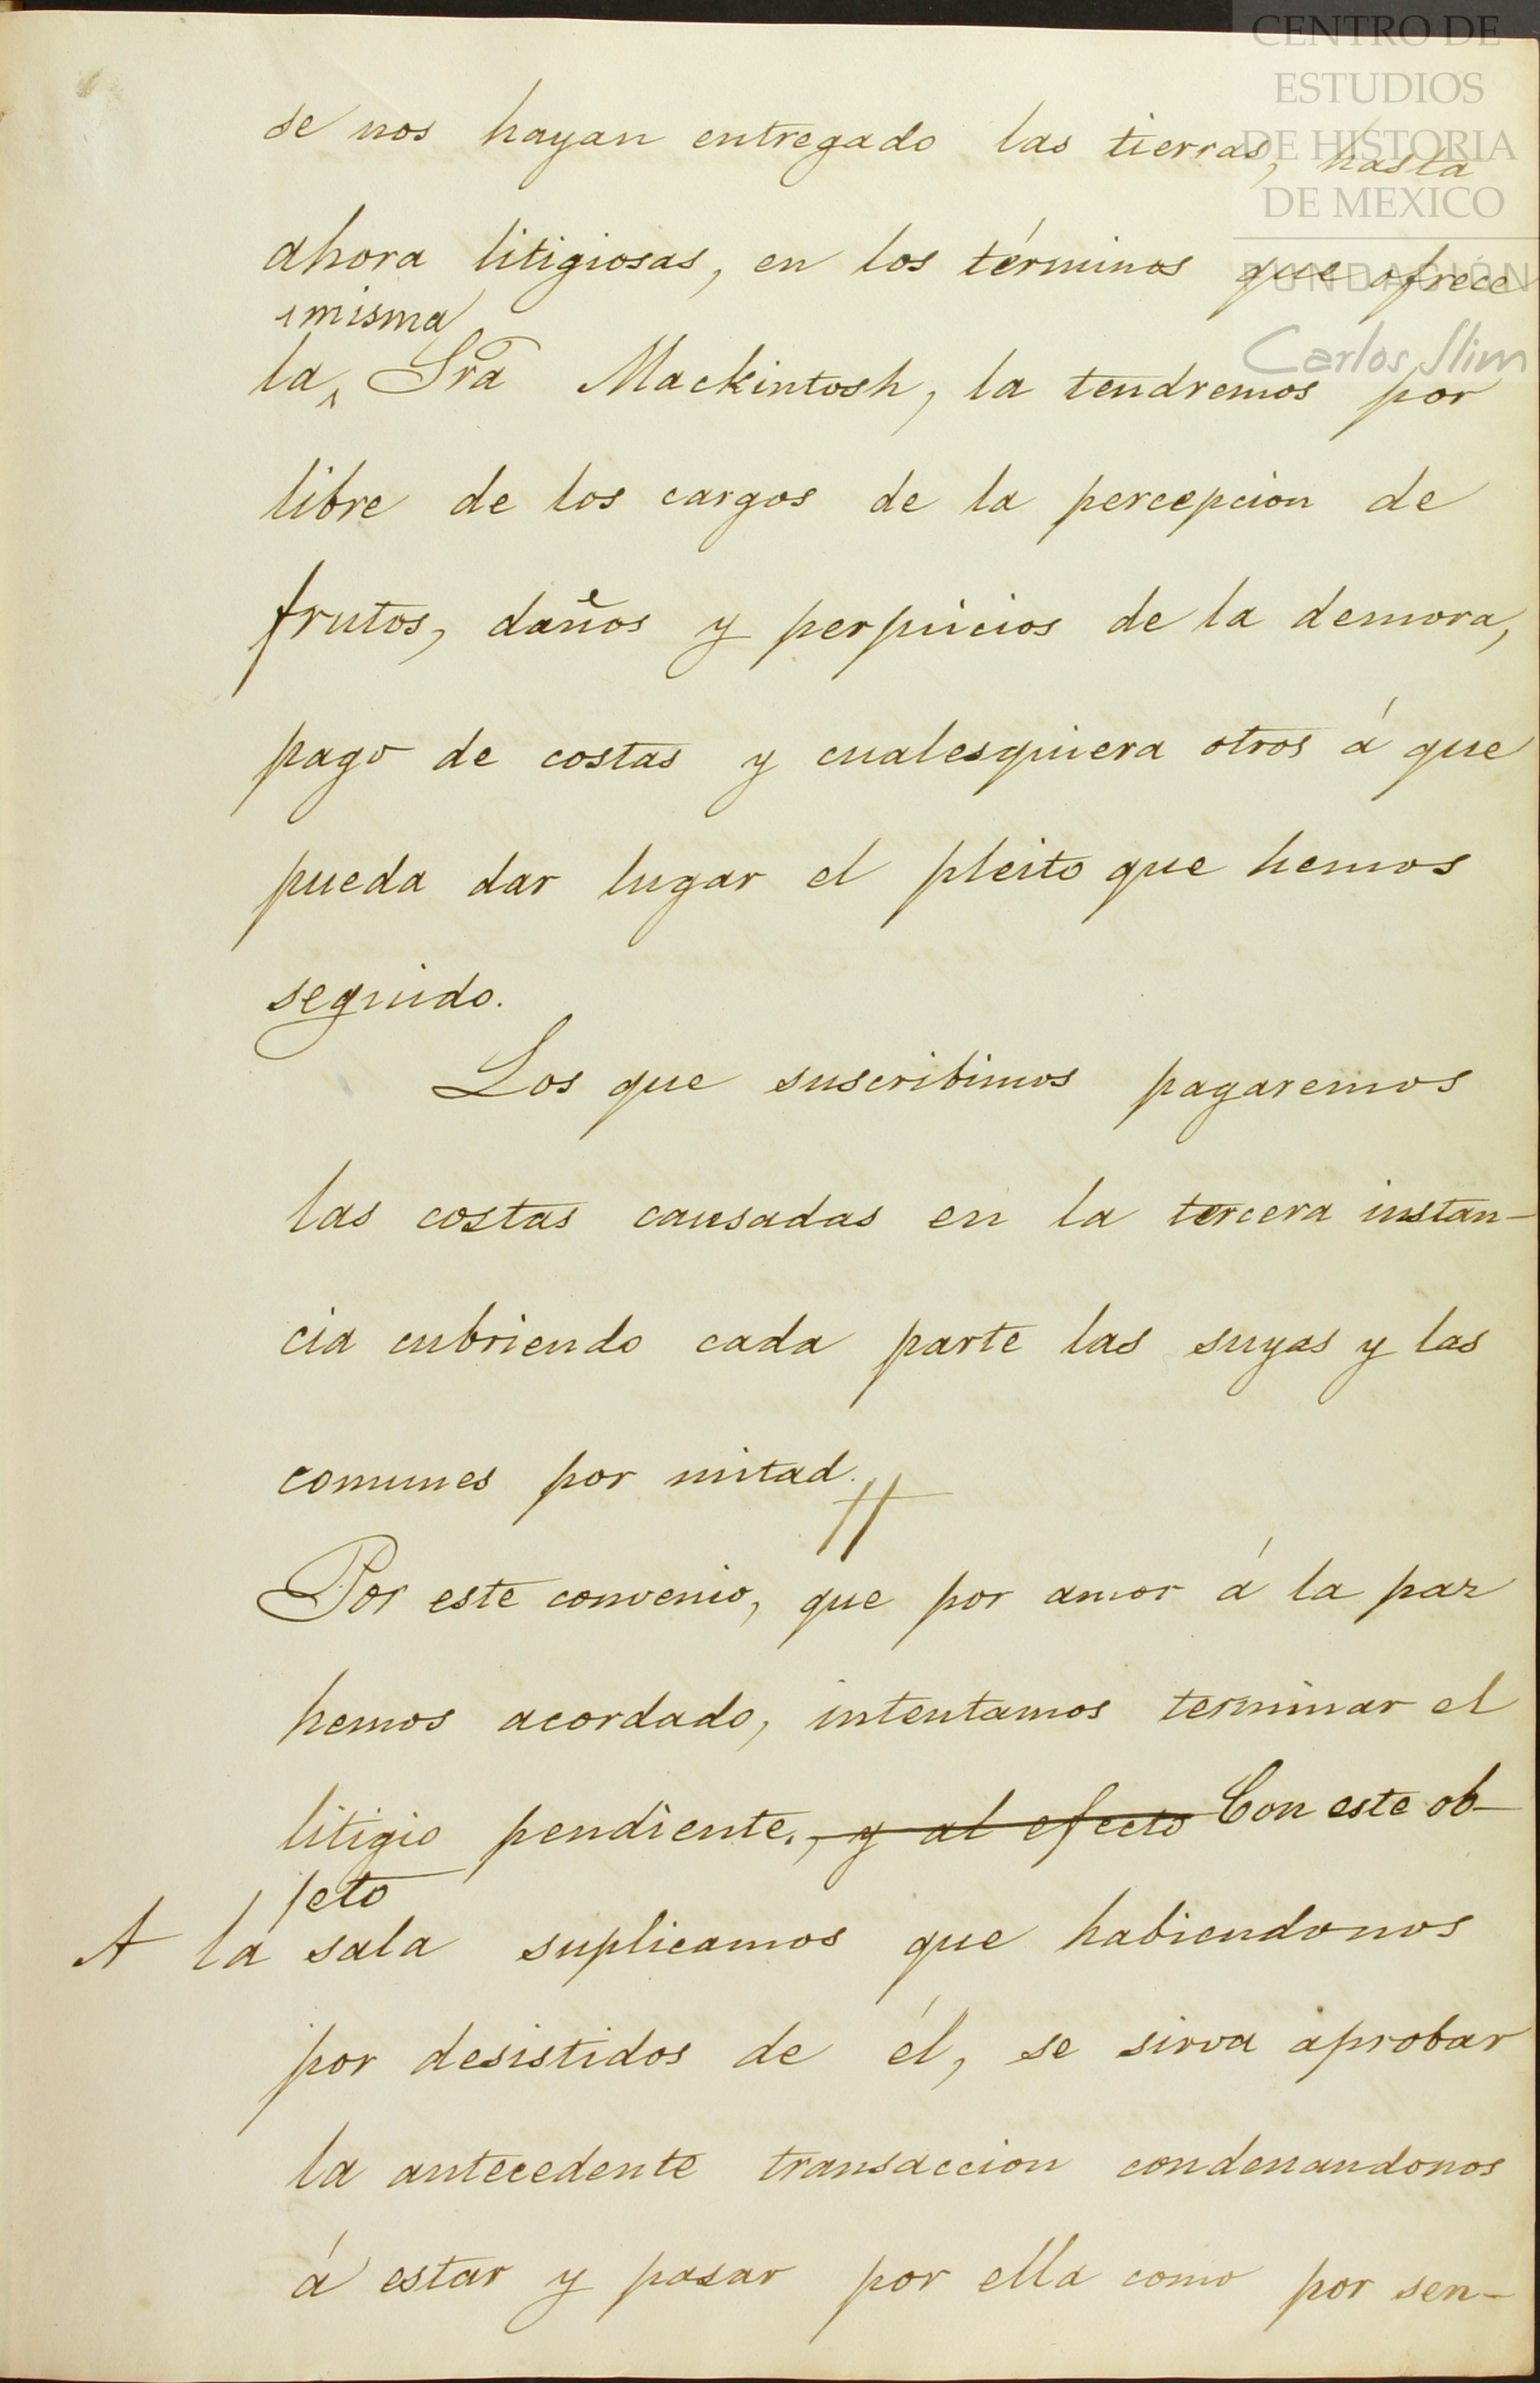 CENTRO DE
ESTUDIOS
DE HISTORIA
DE MEXICO
FUNDACIÓN
Carlos Slim
se nos hayan entregado las tierras, hasta
ahora litigiosas, en los términos que ofrece
misma
la Sra Mackintosh, la tendremos por
libre de los cargos de la percepcion de
frutos, daños y perjuicios de la demora,
pago de costas y cualesquiera otros á que
pueda dar lugar el pleito que hemos
seguido.
Los que suscribimos pagaremos
las costas causadas en la tercera instan-
cia cubriendo cada parte las suyas y las
comunes por mitad.
Por este convenio, que por amor á la paz
hemos acordado, intentamos terminar el
litigio pendiente., y al efecto Con este ob-
jeto
A la sala suplicamos que habiendonos
por desistidos de él, se sirva aprobar
la antecedente transaccion condenandonos
á estar y pasar por ella como por sen-